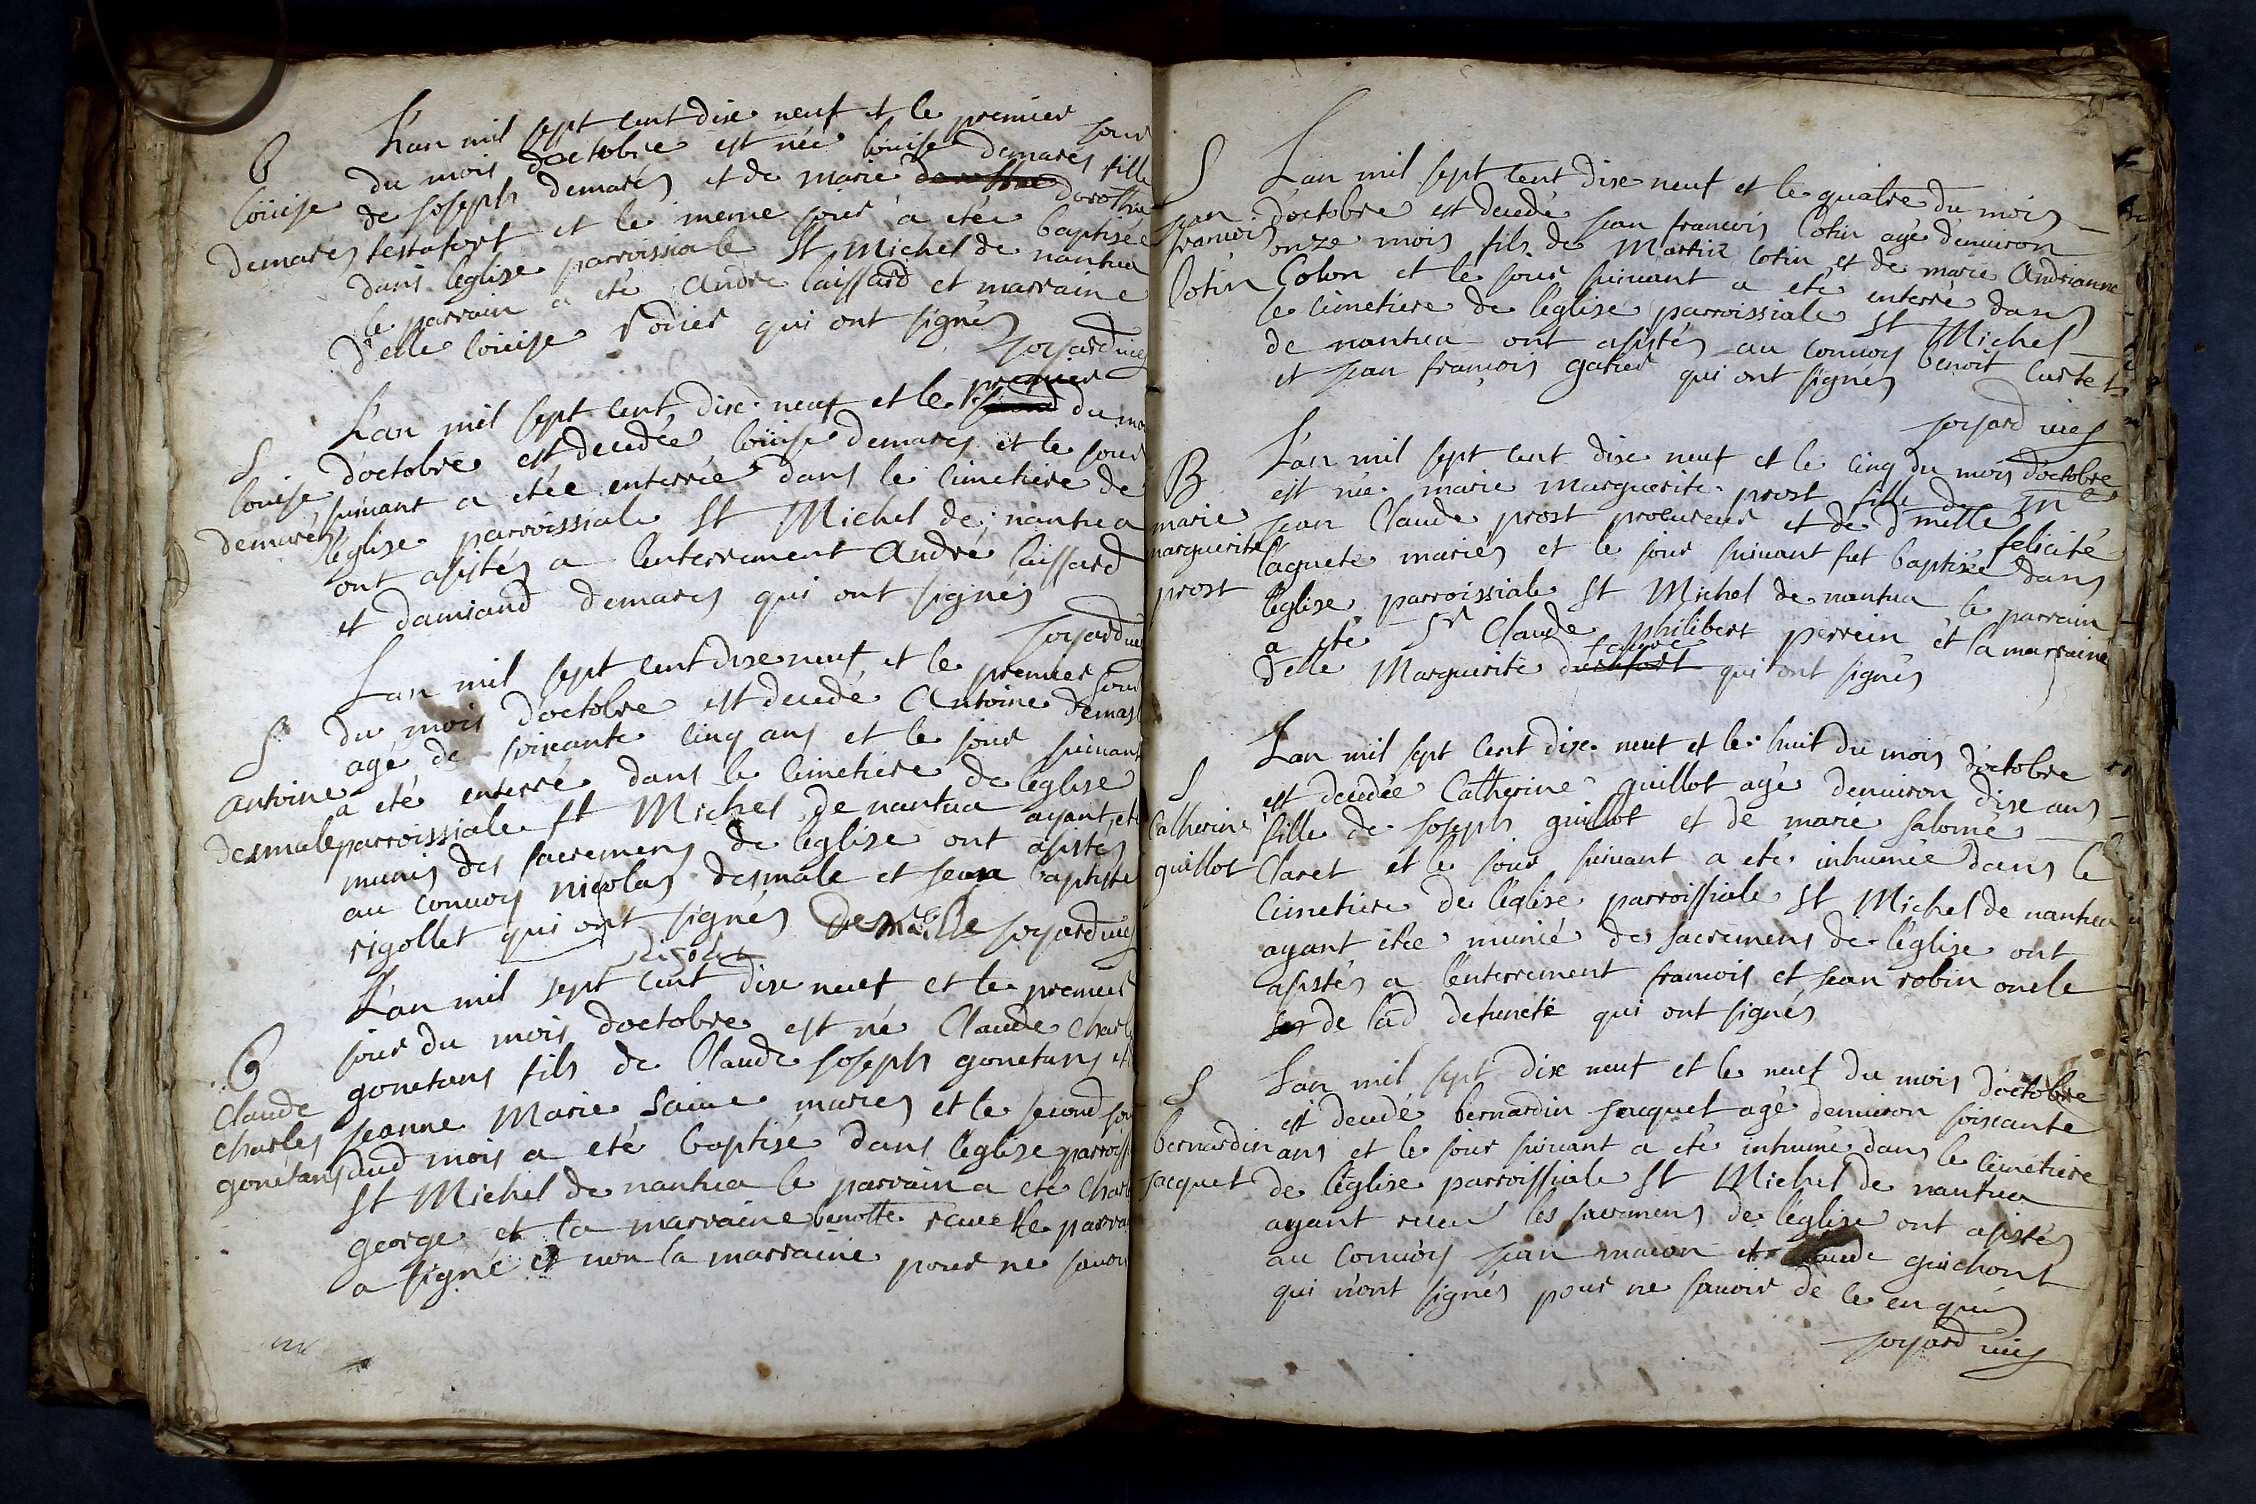 L'an mil sept cent dixe neuf et le premier jour
B
Loüise
demares
du mois d'octobre est née loüise demares fille
de joseph demares et de marie dorothée
testafort et le meme jour a etée baptisée
dans l'eglise parroissiale St Michel de nantua
le parrain a eté andre laissard et marraine
delle loüise rodier qui ont signés
joyard vic
L'an mil sept cent dixe neuf et le premier du mo
S
loüise
demares
d'octobre est decedée loüise demares et le jour
suivant a etée enterrée dans le cimetiere de
l'eglise parroissiale St Michel de nantua
ont asistés a l'enterrement André laissard
et damiand demares qui ont signés
joyard vic
L'an mil sept cent dixe neuf et le premier jour
S
antoine
desmale
du mois d'octobre est decedé Antoine demasl
agé de soixante cinq ans et le jour suivant
a eté enterré dans le cimetiere de l'eglise
parroissiale St Michel de nantua ayant eté
munis des sacremens de l'eglise ont asistes
au convoy nicolas desmale et jean baptiste
rigollet qui ont signés Desmalle joyard vic
Rigolet
L'an mil sept cent dixe neuf et le premier
B
Claude
charles
gonetans
jour du mois d'octobre est né Claude charle
gonetans fils de Claude joseph gonetans et
jeanne Marie mariés et le second jour
dud mois a eté baptisé dans l'eglise parroiss
St Michel de nantua le parrain a eté charle
george et la marraine benotte le parrain
a signé et non la marraine pour ne savoir
L'an mil sept cent dixe neuf et le quatre du mois
S
jean
francois
Cotin
d'octobre est decedé jean francois Cotin agé d'environ
onze mois fils de Martin Cotin et de marie Andrianne
Colon et le jour suivant a eté enterré dans
le cimetiere de l'eglise parroissiale St Michel
de nantua ont asistés au convoy benoit Curtet
et jean françois gatier qui ont signés
joyard vic
L'an mil sept cent dixe neuf et le cinq du mois d'octobre
B
marie
marguerite
prost
est née marie marguerite prost fille de Me
jean Claude prost procureur et de dmelle felicité
laguete mariés et le jour suivant fut baptisée dans
l'eglise parroissiale St Michel de nantua le parrain
a eté Sr Claude philibert perrein et la marraine
delle Marguerite favre qui ont signés
L'an mil sept cent dixe neuf et le huit du mois d'octobre
S
Catherine
guillot
est decedée Catherine guillot agé denviron dixe ans
fille de joseph guillot et de marie salomé
Claret et le jour suivant a eté inhumée dans le
cimetiere de l'eglise parroissiale St Michel de nantua
ayant etée munie des sacremens de l'eglise ont
asistés a l'enterrement francois et jean robin oncle
de lad defuncte qui ont signés
L'an mil sept dixe neuf et le neuf du mois d'octobre
S
bernardin
jacquet
est decedé bernardin jacquet agé denviron soixante
ans et le jour suivant a eté inhumé dans le cimetiere
de l'eglise parroissiale St Michel de nantua
ayant receu les sacremens de l'eglise ont asistés
au convoy jean maron et claude guichont
qui n'ont signés pour ne savoir de ce enquis
joyard vic